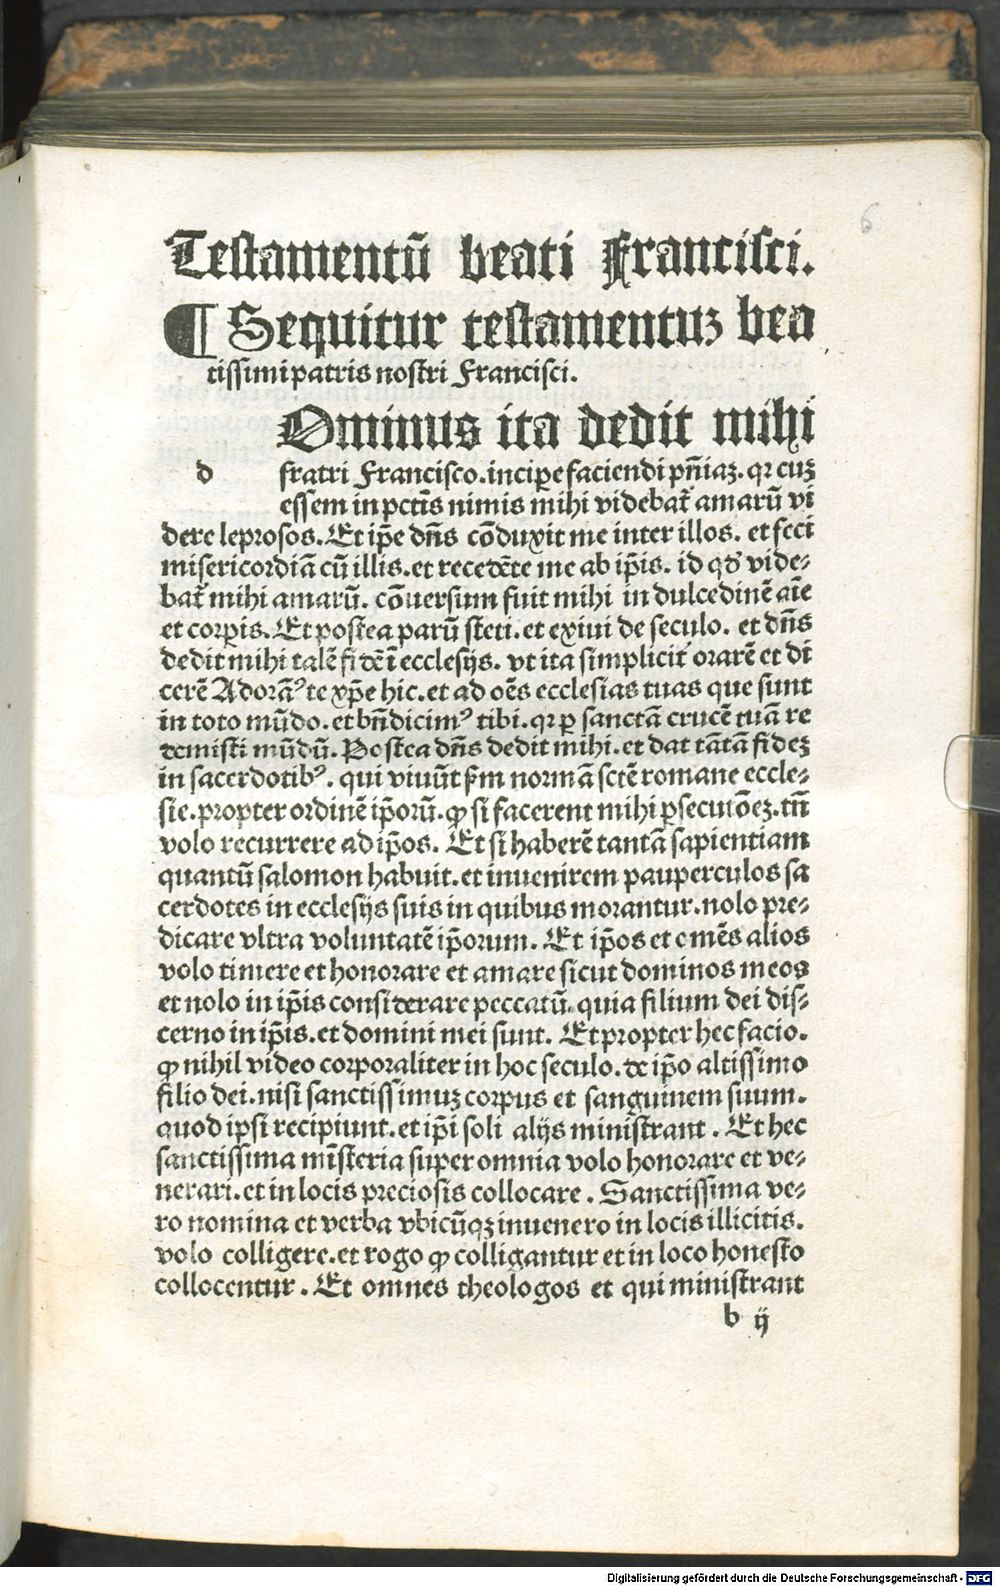 6
Testamentū beati Francisci.
¶ Sequitur testamentuʒ bea
tissimi patris nostri Francisci.
Ominus ita dedit mihi
d fratri Francisco. incipe faciendi pn̄iaʒ. qꝛ cuʒ
essem in pctīs nimis mihi videbat᷑ amarū vi
dere leprosos. Et ip̄e dn̄s cōduxit me inter illos. et feci
misericordiā cū illis. et recedēte me ab ip̄is. id qd̕ vide⸗
bat᷑ mihi amarū. cōuersum fuit mihi in dulcedinē aīe
et corꝑis. Et postea parū steti. et exiui de seculo. et dn̄s
dedit mihi talē fidē ī ecclesijs. vt ita simplicit᷑ orarē et di
cerē Adoramꝰ te xp̄e hic. et ad oēs ecclesias tuas que sunt
in toto mūdo. et bn̄dicimꝰ tibi. qꝛ ꝑ sanctā crucē tuā re
demisti mūdū. Postea dn̄s dedit mihi. et dat tātā fideʒ
in sacerdotibꝰ. qui viuūt ẜm normā sctē romane eccle⸗
sie. propter ordinē ip̄orū. ꝙ si facerent mihi ꝑsecutōeʒ. tn̄
volo recurrere ad ip̄os. Et si haberē tantā sapientiam
quantū salomon habuit. et inuenirem pauperculos sa
cerdotes in ecclesijs suis in quibus morantur. nolo pre⸗
dicare vltra voluntatē ip̄orum. Et ip̄os et omēs alios
volo timere et honorare et amare sicut dominos meos
et nolo in ip̄is considerare peccatū. quia filium dei dis⸗
cerno in ip̄is. et domini mei sunt. Et propter hec facio.
ꝙ nihil video corporaliter in hoc seculo. de ip̄o altissimo
filio dei. nisi sanctissimuʒ corpus et sanguinem suum.
quod ipsi recipiunt. et ip̄i soli alijs ministrant. Et hec
sanctissima mīsteria super omnia volo honorare et ve⸗
nerari. et in locis preciosis collocare. Sanctissima ve⸗
ro nomina et verba vbicūqʒ inuenero in locis illicitis.
volo colligere. et rogo ꝙ colligantur et in loco honesto
collocentur. Et omnes theologos et qui ministrant
b ij
Digitalisierung gefördert durch die Deutsche Forschungsgemeinschaft - DFG